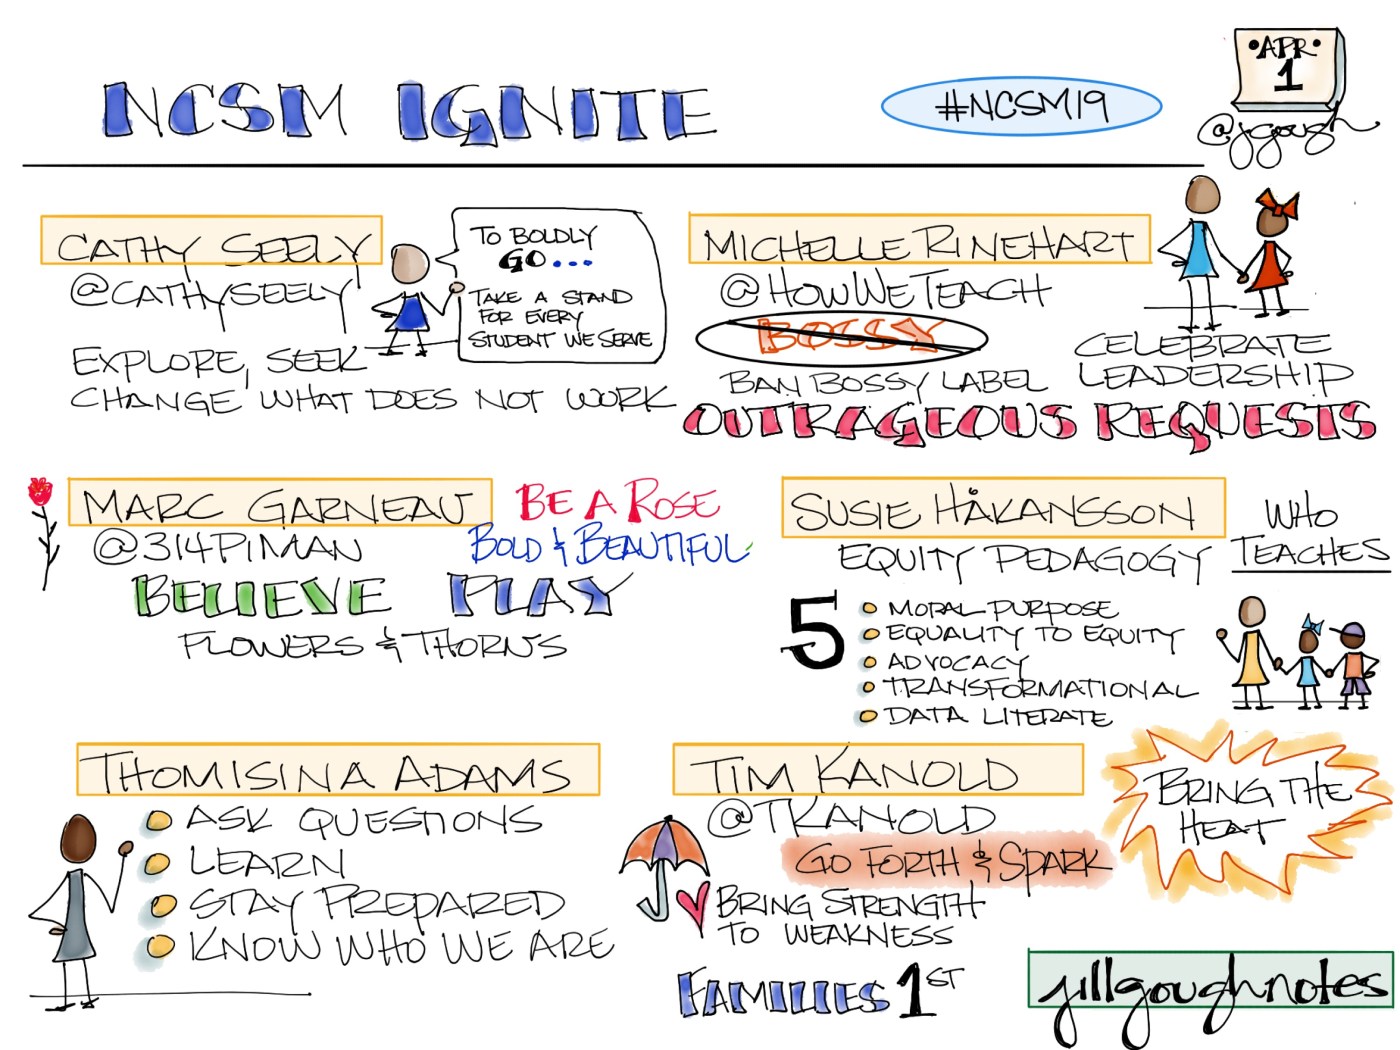 NCSM IGNITE
#NCSM19
•APR•
1
@jgough
CATHY SEELY
@CATHYSEELY
EXPLORE, SEEK
CHANGE WHAT DOES NOT WORK
TO BOLDLY
GO...
TAKE A STAND
FOR EVERY
STUDENT WE SERVE
MICHELLE RINEHART
@HOWWETEACH
BOSSY
BAN BOSSY LABEL
CELEBRATE
LEADERSHIP
OUTRAGEOUS REQUESTS
MARC GARNEAU
@314PIMAN
BE A ROSE
BOLD & BEAUTIFUL
BELIEVE PLAY
FLOWERS & THORNS
SUSIE HÅKANSSON
EQUITY PEDAGOGY
WHO
TEACHES
5
MORAL PURPOSE
EQUALITY TO EQUITY
ADVOCACY
TRANSFORMATIONAL
DATA LITERATE
THOMISINA ADAMS
ASK QUESTIONS
LEARN
STAY PREPARED
KNOW WHO WE ARE
TIM KANOLD
@TKANOLD
GO FORTH & SPARK
BRING STRENGTH
TO WEAKNESS
FAMILIES 1ST
BRING THE
HEAT
jillgoughnotes